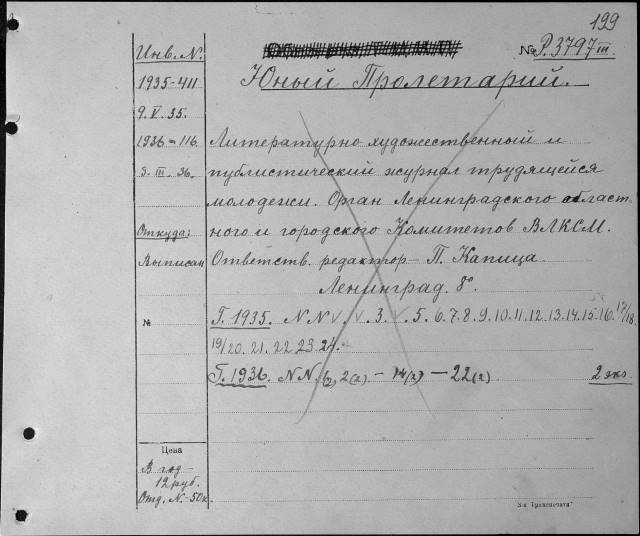 199
№ Р.3797 III
Инв. N:
Юный Пролетарий.
1935-411
9.V.35.
1936-116
5.III.36.
Литературно художественный и
публистический журнал трудящейся
молодежи. Орган Ленинградского област-
ного и городского Комитетов ВЛКСМ.
Откуда:
Выписан
Ответств. редактор - П. Капица.
Ленинград. 8°.
№
Г. 1935. N N v. v. 3. v. 5. 6. 7. 8. 9. 10. 11. 12. 13. 14. 15. 16. 17/18.
19/20. 21. 22. 23. 24.
Г. 1936. N N. 2(2) - 14(2) - 22(2) 2 экз.
Цена
В год -
12 руб.
Отд. N. - 50 к.